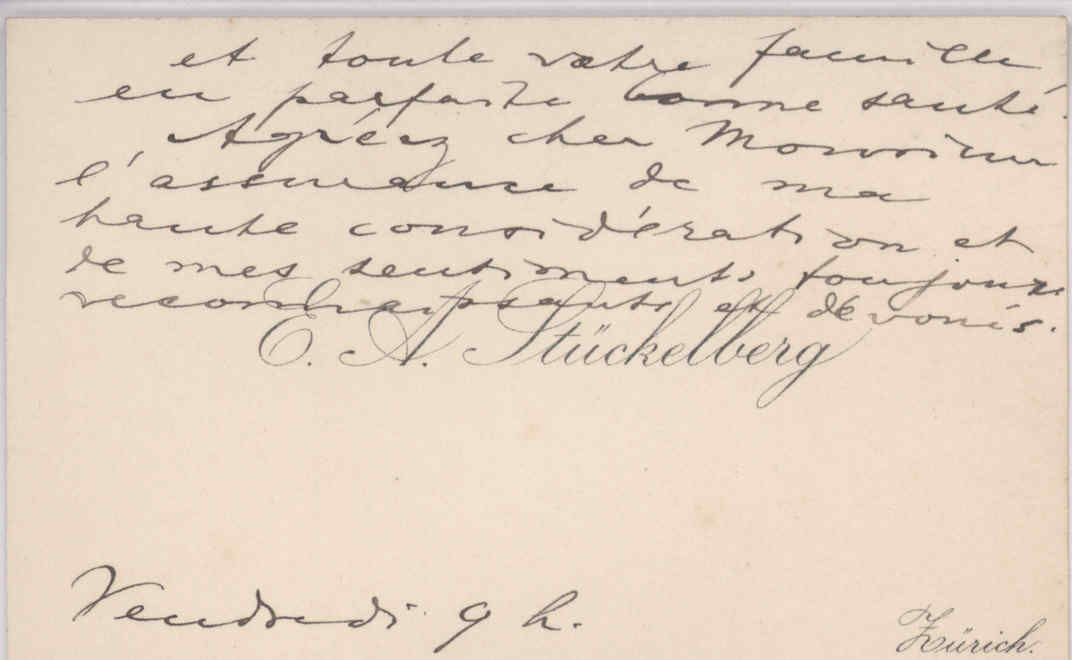 et toute votre famille
en parfaite bonne santé.
Agréez cher Monsieur
l'assurance de ma
haute considération et
de mes sentiments toujours
reconnaissants et dévoués.
E. A. Stückelberg
Vendredi 9 h.
Zürich.